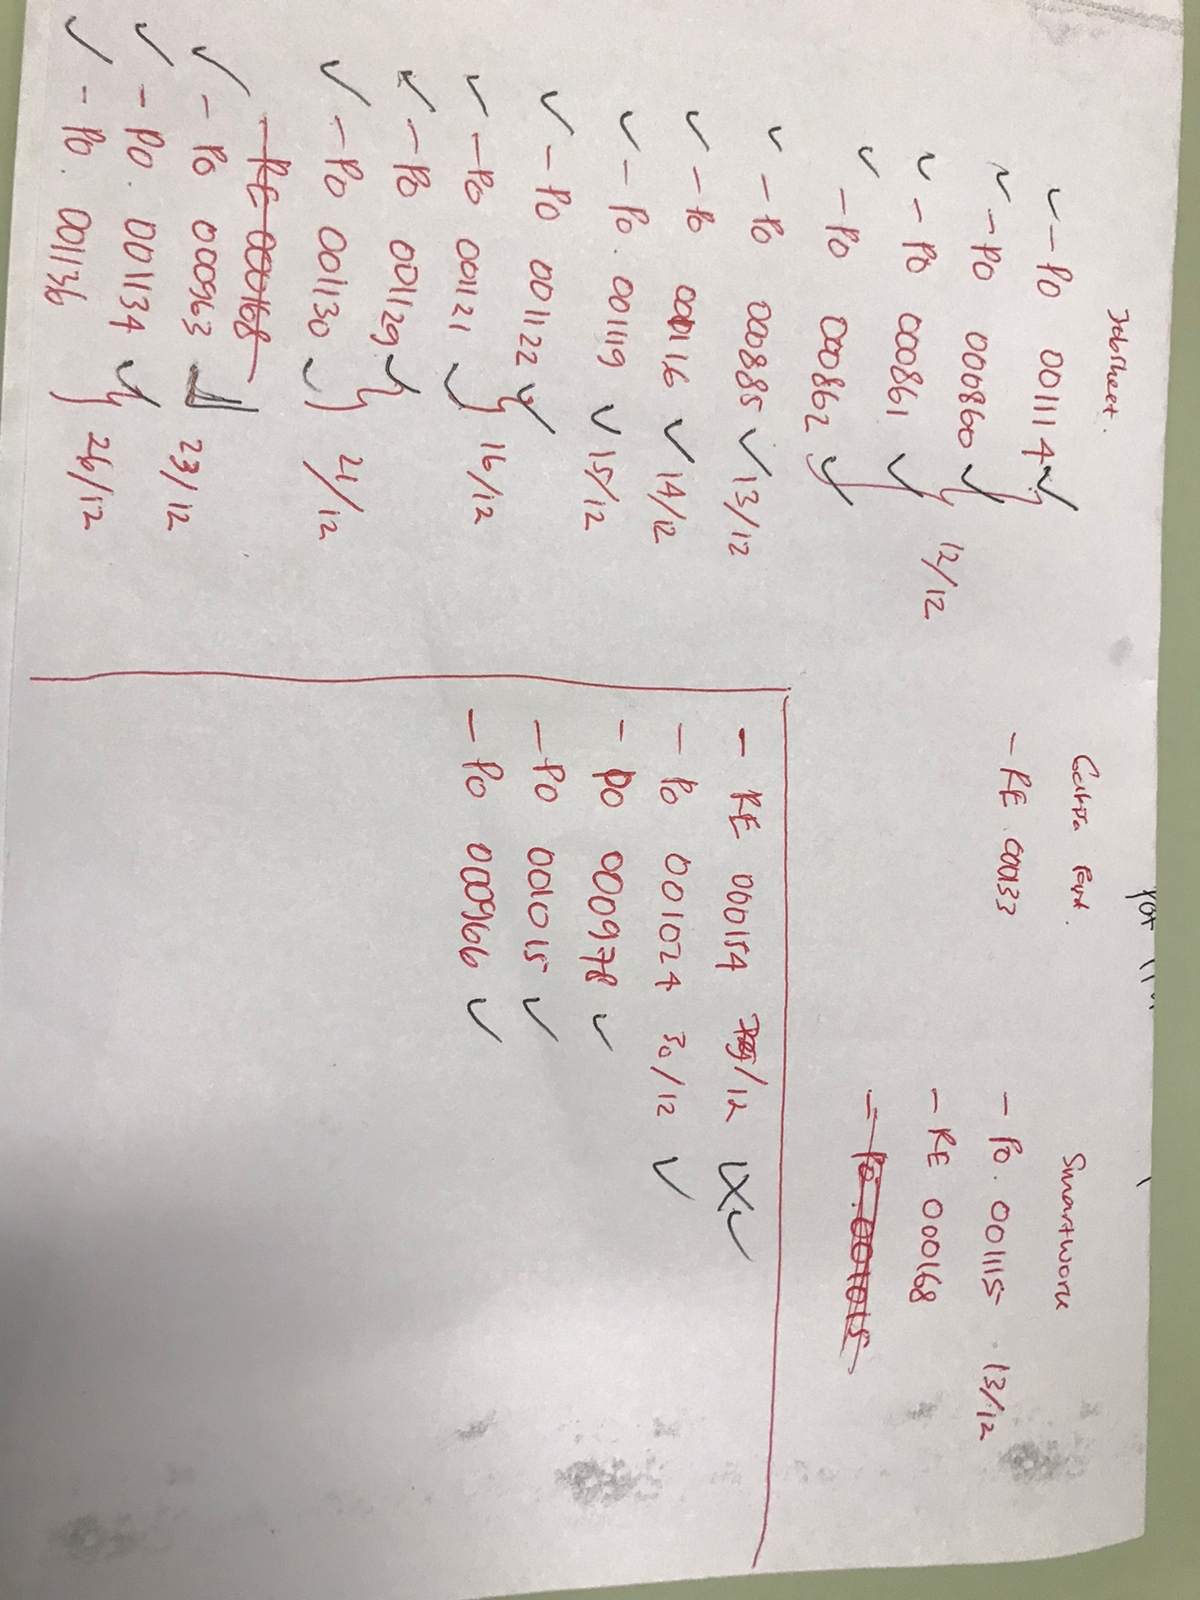 Jobsheet.
✓ - PO 001114 ✓
✓ - PO 000860 ✓
✓ - PO 000861 ✓ 12/12
✓ - PO 000862 ✓
✓ - PO 000885 ✓ 13/12
✓ - PO 001116 ✓ 14/12
✓ - PO. 001119 ✓ 15/12
✓ - PO 001122 ✓
✓ - PO 001121 ✓ 16/12
✓ - PO 001129 ✓
✓ - PO 001130 ✓ 21/12
- RE 000168
✓ - PO 000963 23/12
✓ - PO. 001134 ✓
✓ - PO. 001136 26/12
- RE 00133
Smartwork
- PO. 001115 13/12
- RE 000168
- PO. 001015
- RE 000154 /12
- PO 001024 30/12 ✓
- PO 000978 ✓
- PO 001015 ✓
- PO 000966 ✓